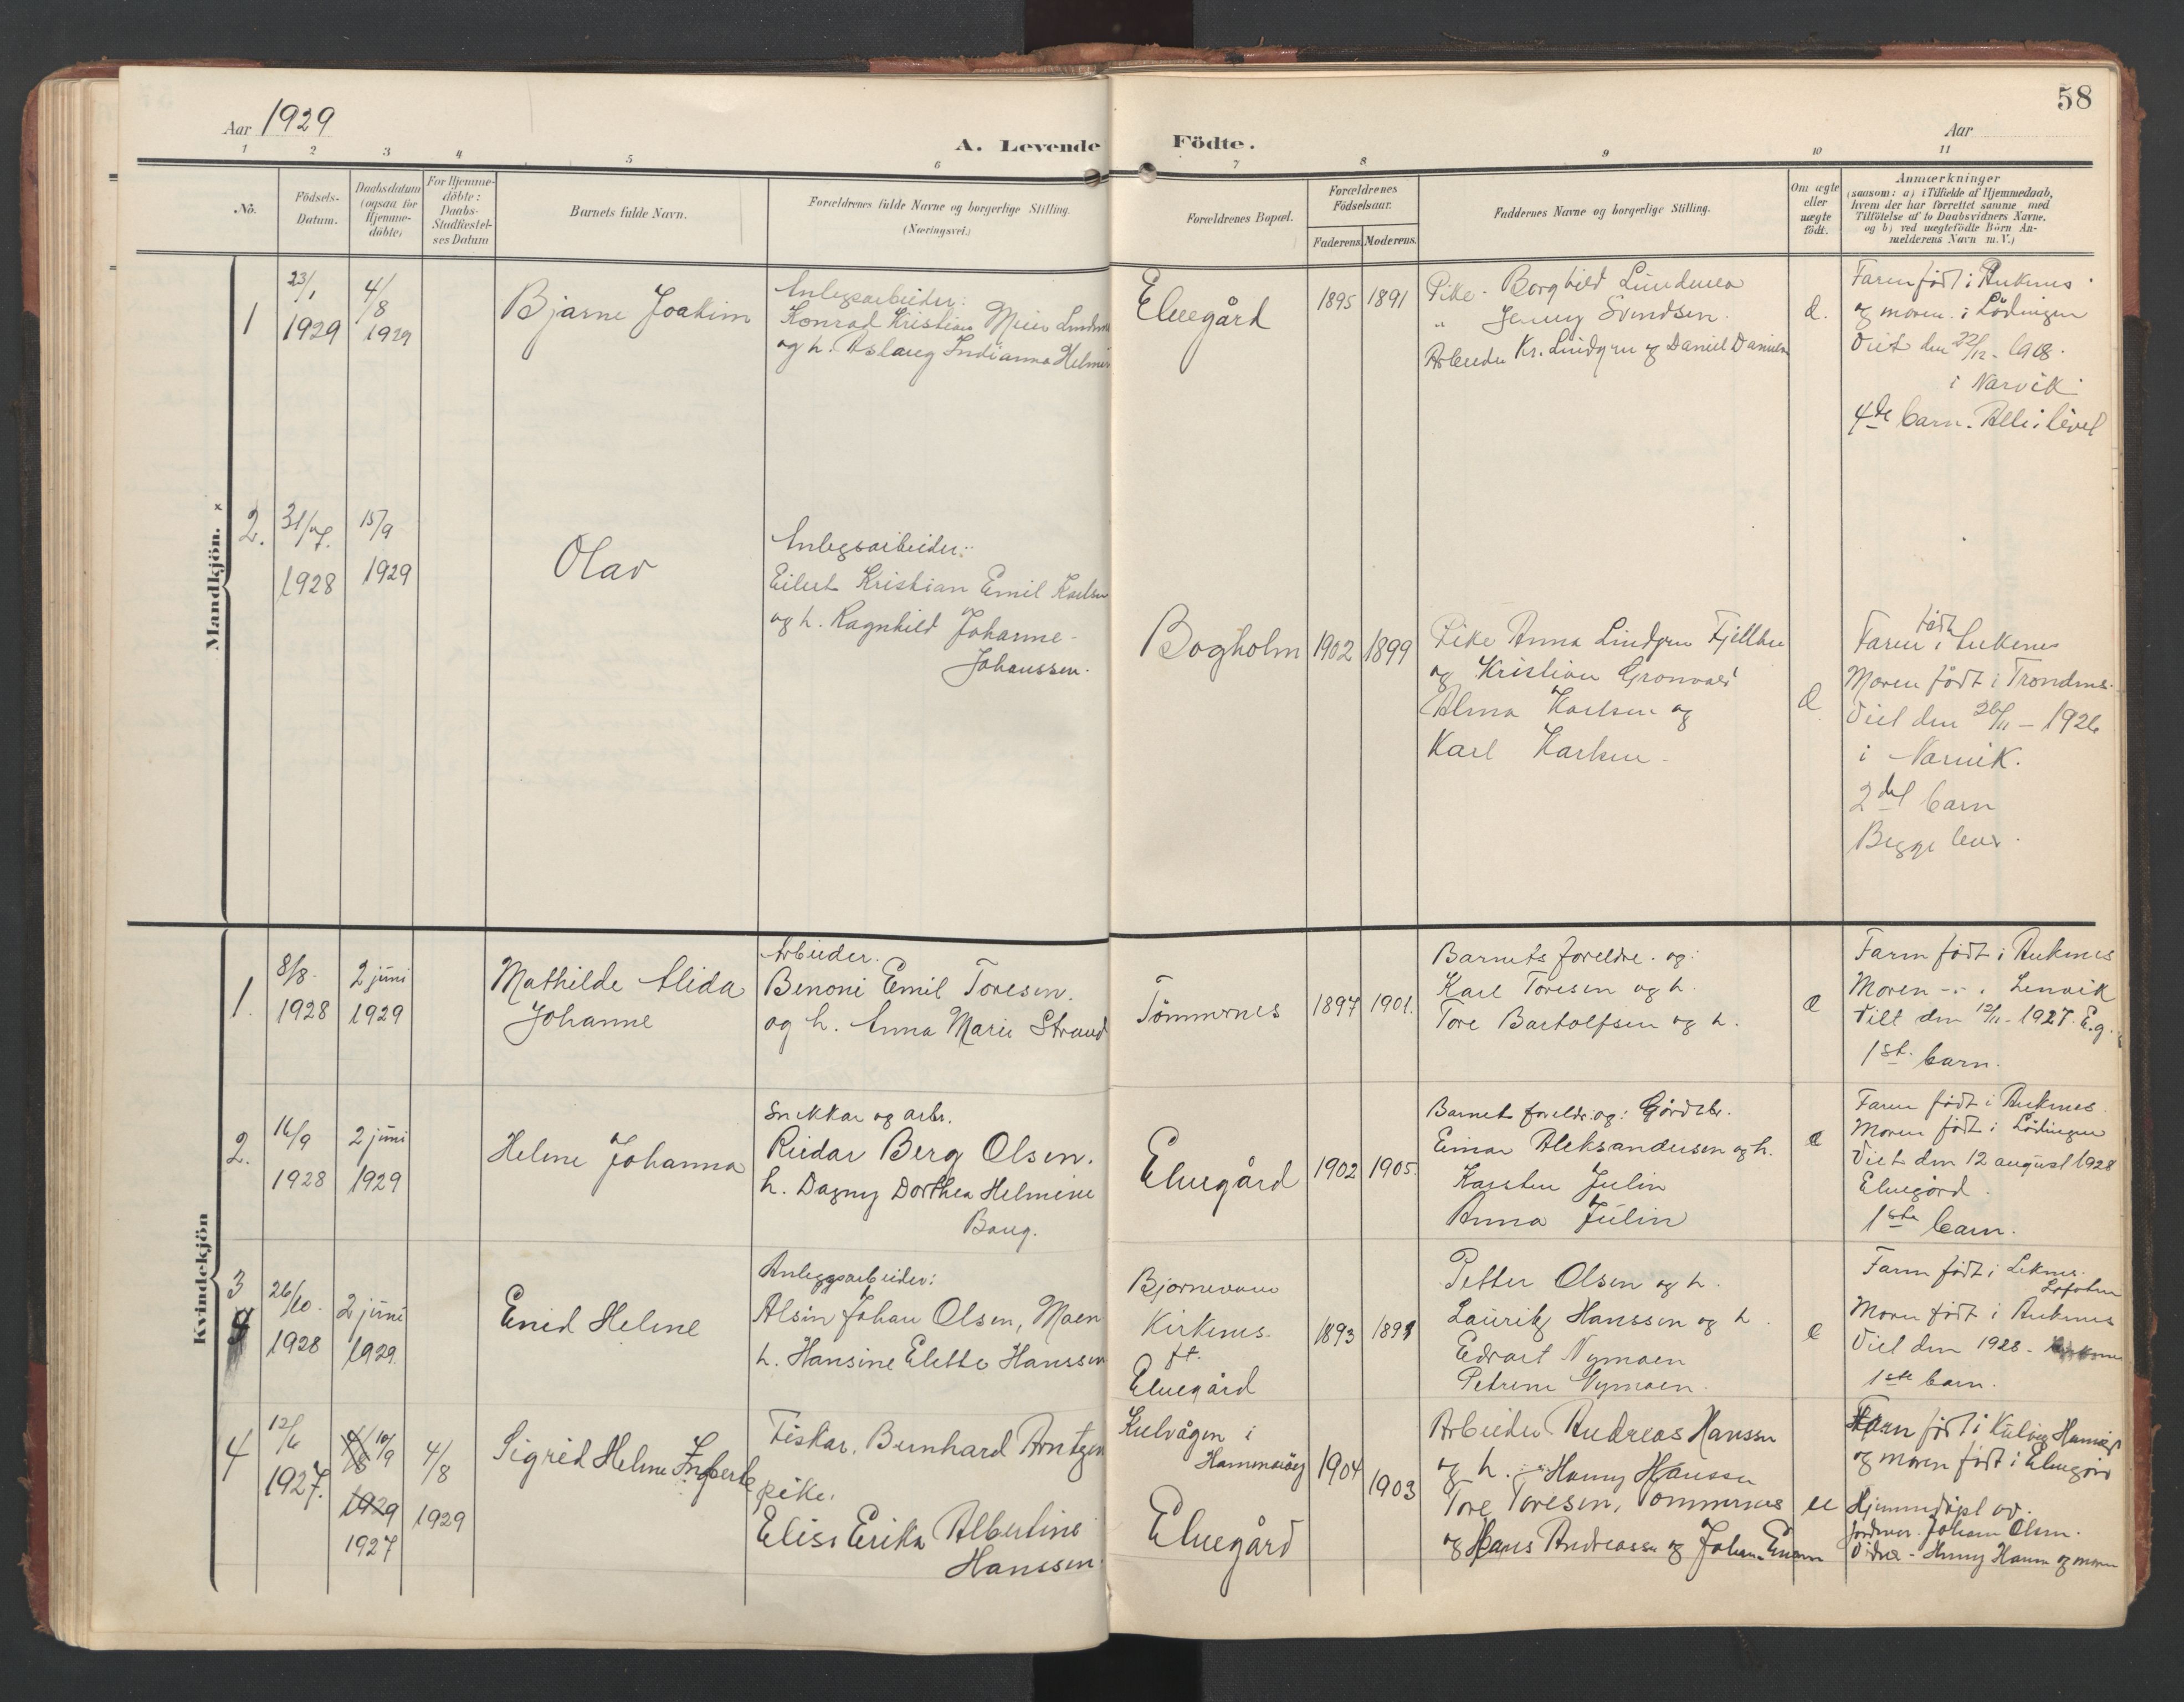 58
Aar 1929
A. Levende Födte.
Aar
1 2 3 4 5 6 7 8 9 10 11
No.
Födsels-
Datum.
Daabsdatum
(ogsaa for
Hjemme-
döbte)
For Hjemme-
döbte:
Daabs-
Stadfæstel-
ses Datum
Barnets fulde Navn.
Forældrenes fulde Navne og borgerlige Stilling.
(Næringsvei.)
Forældrenes Bopæl.
Forældrenes
Födselsaar.
Faderens. Moderens.
Faddernes Navne og borgerlige Stilling.
Om ægte
eller
uægte
födt.
Anmærkninger
(saasom: a) i Tilfælde af Hjemmedaab,
hvem der har forrettet samme med
Tilföielse af to Daabsvidners Navne,
og b) ved uægtefödte Börn An-
melderens Navn m. V.)
Mandkjön.
1
23/1
1929
4/8
1929
Bjarne Joakim
Anlegsarbeider:
Konrad Kristian Meier
og h. Aslaug Indianna
Elvegård
1895 1891
Pike - Borghild
" Jenny Svendsen.
Arbeider Kr. Lindgren og Daniel
Faren født i
og moren i Lödingen
Viet den 22/12 - 1918.
i Narvik.
4de barn. Alle i livet
2.
31/7.
1928
15/9
1929
Olav
Anlegsarbeider:
Eilert Kristian Emil Karlsen
og h. Ragnhild Johanne
Johanssen.
Bogholm
1902 1899
Pike Anna Lindgren
og Kristian Grønvold
Alma Karlsen og
Karl Karlsen
Faren født i
Moren født i Trondens.
Viet den 26/11 - 1926
i Narvik.
2det barn
Begge lever.
Kvindekjön
1.
8/8.
1928
2 juni
1929
Mathilde Alida
Johanne
Arbeider.
Benoni Emil Toresen.
og h. Anna Marie Strand
Tömmernes
1897 1901.
Barnets foreldre. og:
Karl Toresen og h.
Tore Bartolfsen og h.
Faren født i Ankenes
Moren - " - Lenvik
Viet den 12/11 - 1927. E.g.
1st. barn.
2.
16/9
1928
2 juni
1929
Helene Johanna
Snekkar og arb.
Reidar Berg Olsen.
h. Dagny Dorthea Helmine
Baug.
Elvegård
1902 1905.
Barnets foreldr. og: Gårdbr.
Einar Aleksandersen og h.
Karsten Julin
Anna Julin
Faren født i Ankenes.
Moren født i Lödingen
Viet den 12 august 1928
Elvegård.
1ste barn.
3
26/10.
1928
2 juni
1929.
Enid Helene
Anleggsarbeider:
Alsin Johan Olsen, Moen
h. Hansine Elette Hanssen
Bjørnevann
Kirkenes.
ft.
Elvegård
1893 1891
Petter Olsen og h.
Lauritz Hanssen og h.
Edvart Nymoen
Petrine Nymoen.
Faren født i Leknes.
Lofoten
Moren født i Ankenes
Viet den 1928 -
1ste barn.
4
12/6
1927.
10/9
1929
1927
4/8
1929
Sigrid Helene
Fisker. Bernhard Arntzen
pike.
Elise Erika Albertine
Hanssen.
i
Elvegård
1904
1903
Arbeider Andreas Hanssen
og h. Hanny Hanssen
Tore Toresen, Tömmernes
og Hans Andreassen og Johan
Faren født i
og moren født i Elvegård
Hjemmedöpt av.
jordmor. Johan Olsen.